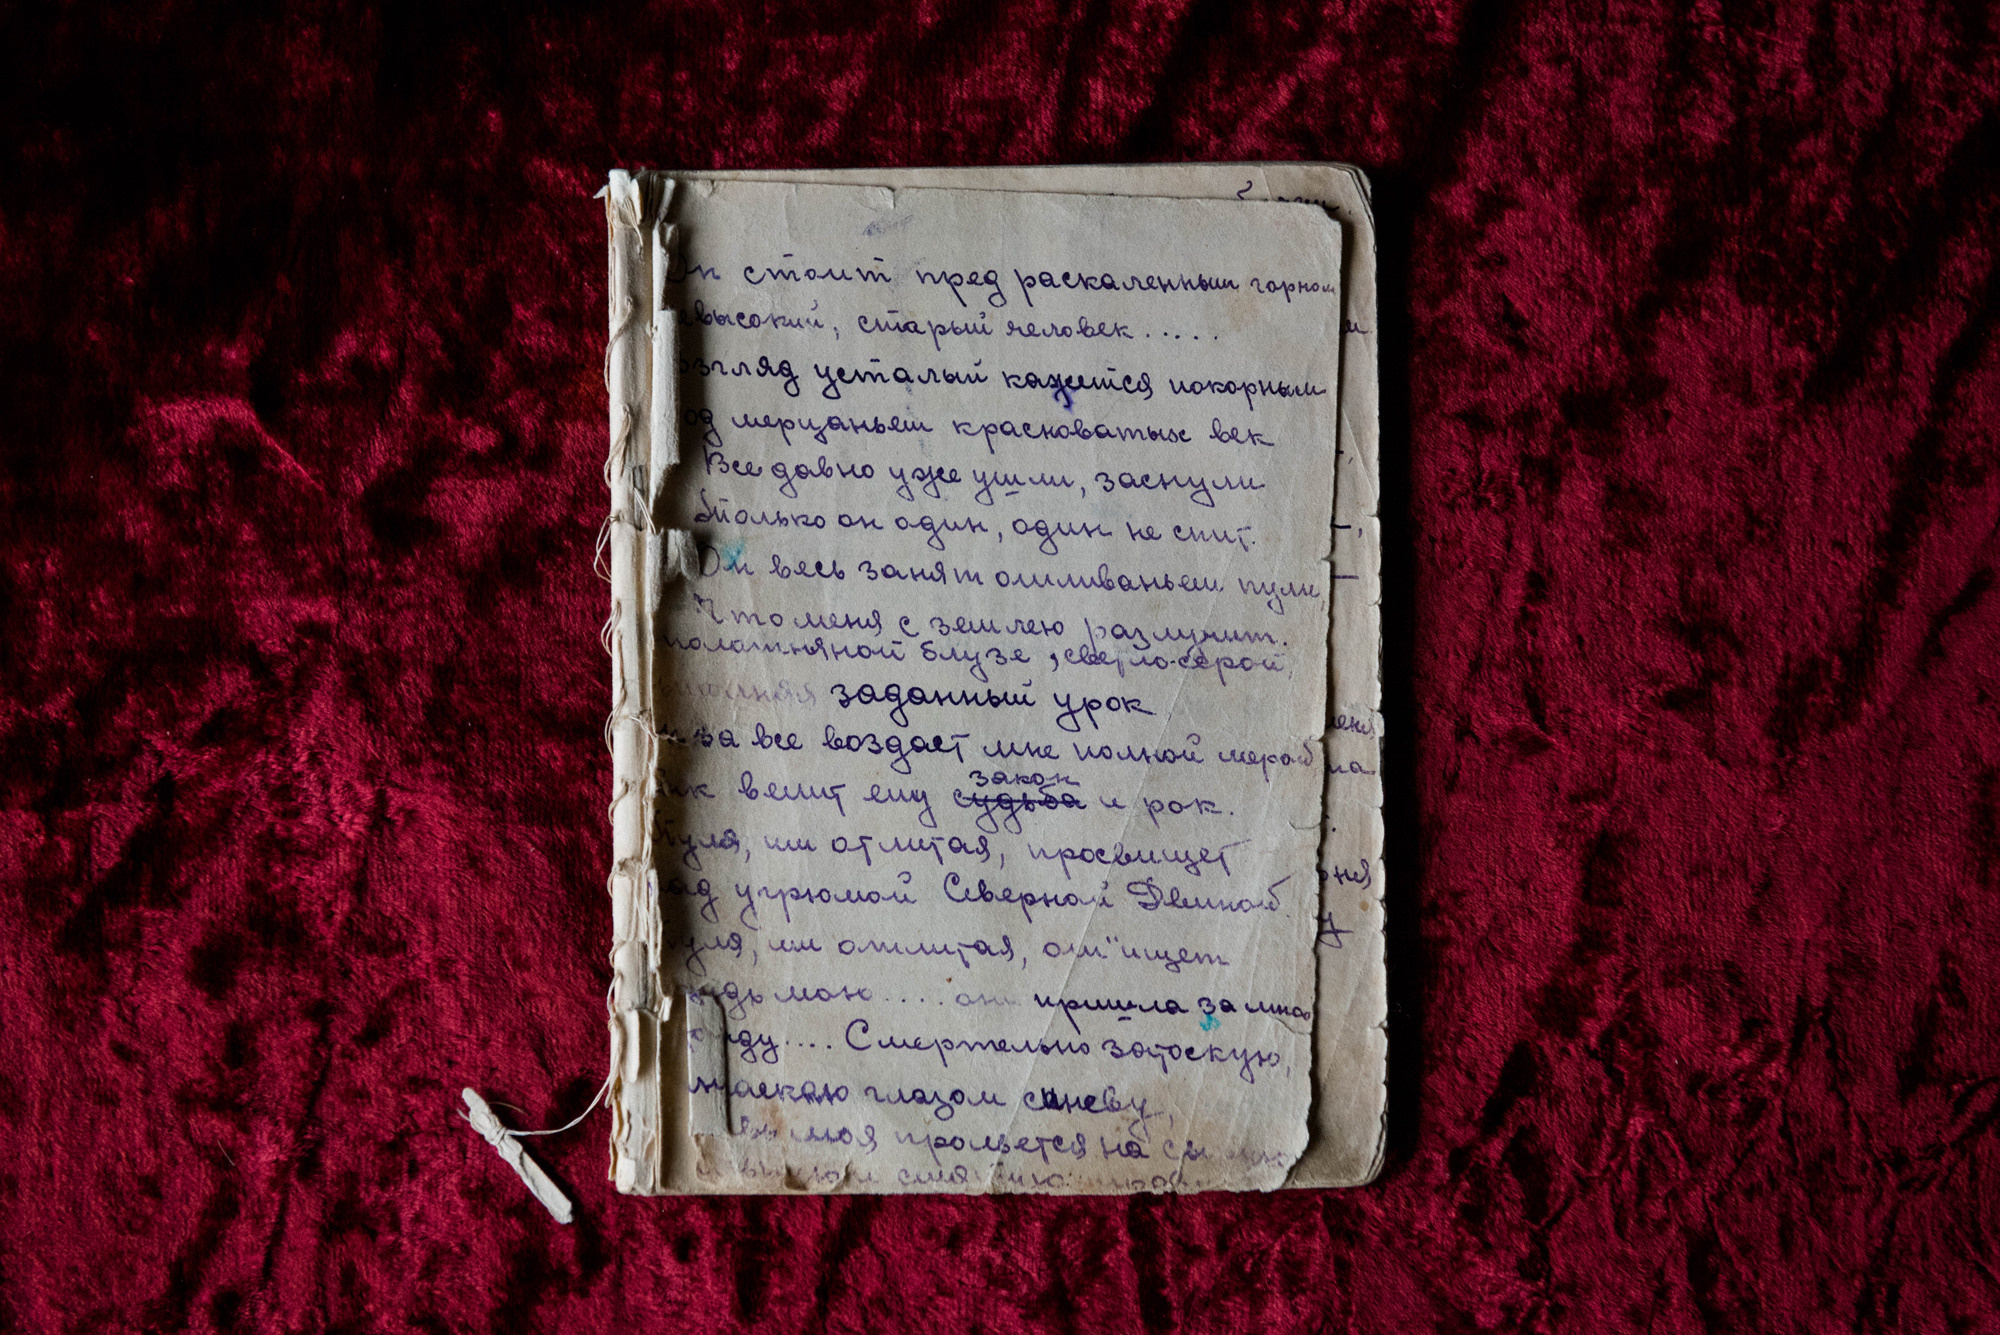 Он стоит пред раскаленным горном
евысокий, старый человек.....
взгляд усталый кажется покорным
од мерцаньем красноватых век
Все давно уже ушли, заснули
Только он один, один не спит.
Он весь занят отливаньем пули,
Что меня с землею разлучит.
полотняной блузе, светло-серой,
заданный урок
и за все воздаст мне полной мерой
Так велит ему закон судьба и рок.
Пуля, им отлитая, просвищет
над угрюмой Северной Двиной.
уля, им отлитая, отыщет
грудь мою..... она пришла за мной
ду.... Смертельно затоскую,
ласкаю глазам синеву,
моя прольется на